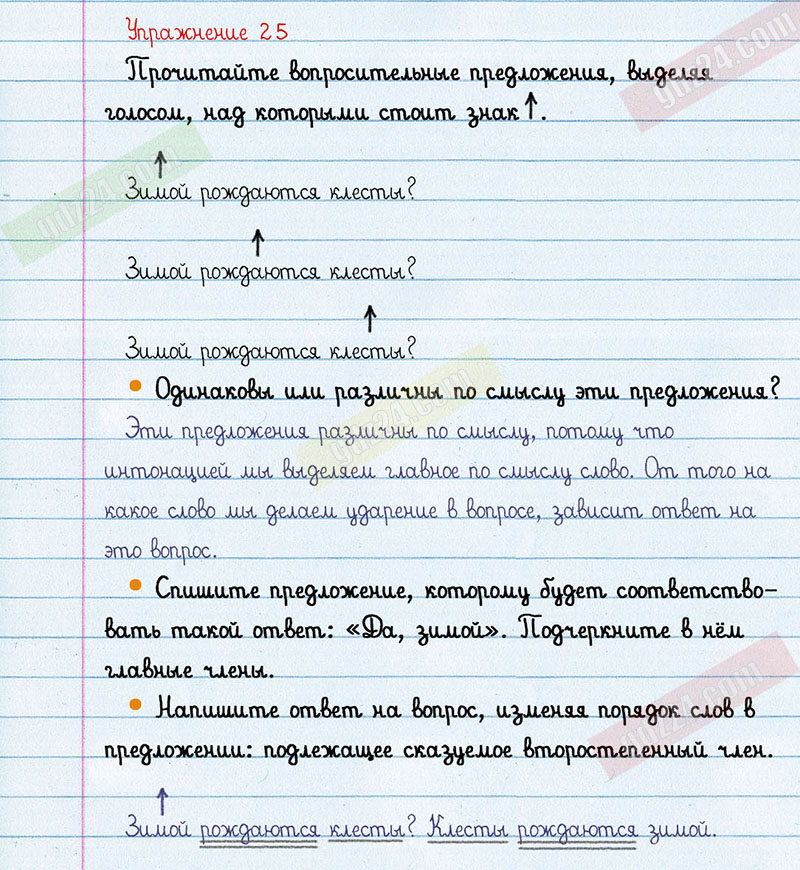 Упражнение 25
Прочитайте вопросительные предложения, выделяя
голосом, над которыми стоит знак↑.
↑
Зимой рождаются клесты?
↑
Зимой рождаются клесты?
↑
Зимой рождаются клесты?
• Одинаковы или различны по смыслу эти предложения?
Эти предложения различны по смыслу, потому что
интонацией мы выделяем главное по смыслу слово. От того на
какое слово мы делаем ударение в вопросе, зависит ответ на
это вопрос.
• Спишите предложение, которому будет соответство-
вать такой ответ: «Да, зимой». Подчеркните в нём
главные члены.
• Напишите ответ на вопрос, изменяя порядок слов в
предложении: подлежащее сказуемое второстепенный член.
↑
Зимой рождаются клесты? Клесты рождаются зимой.
gdz24.com
gdz24.com
gdz24.com
gdz24.com